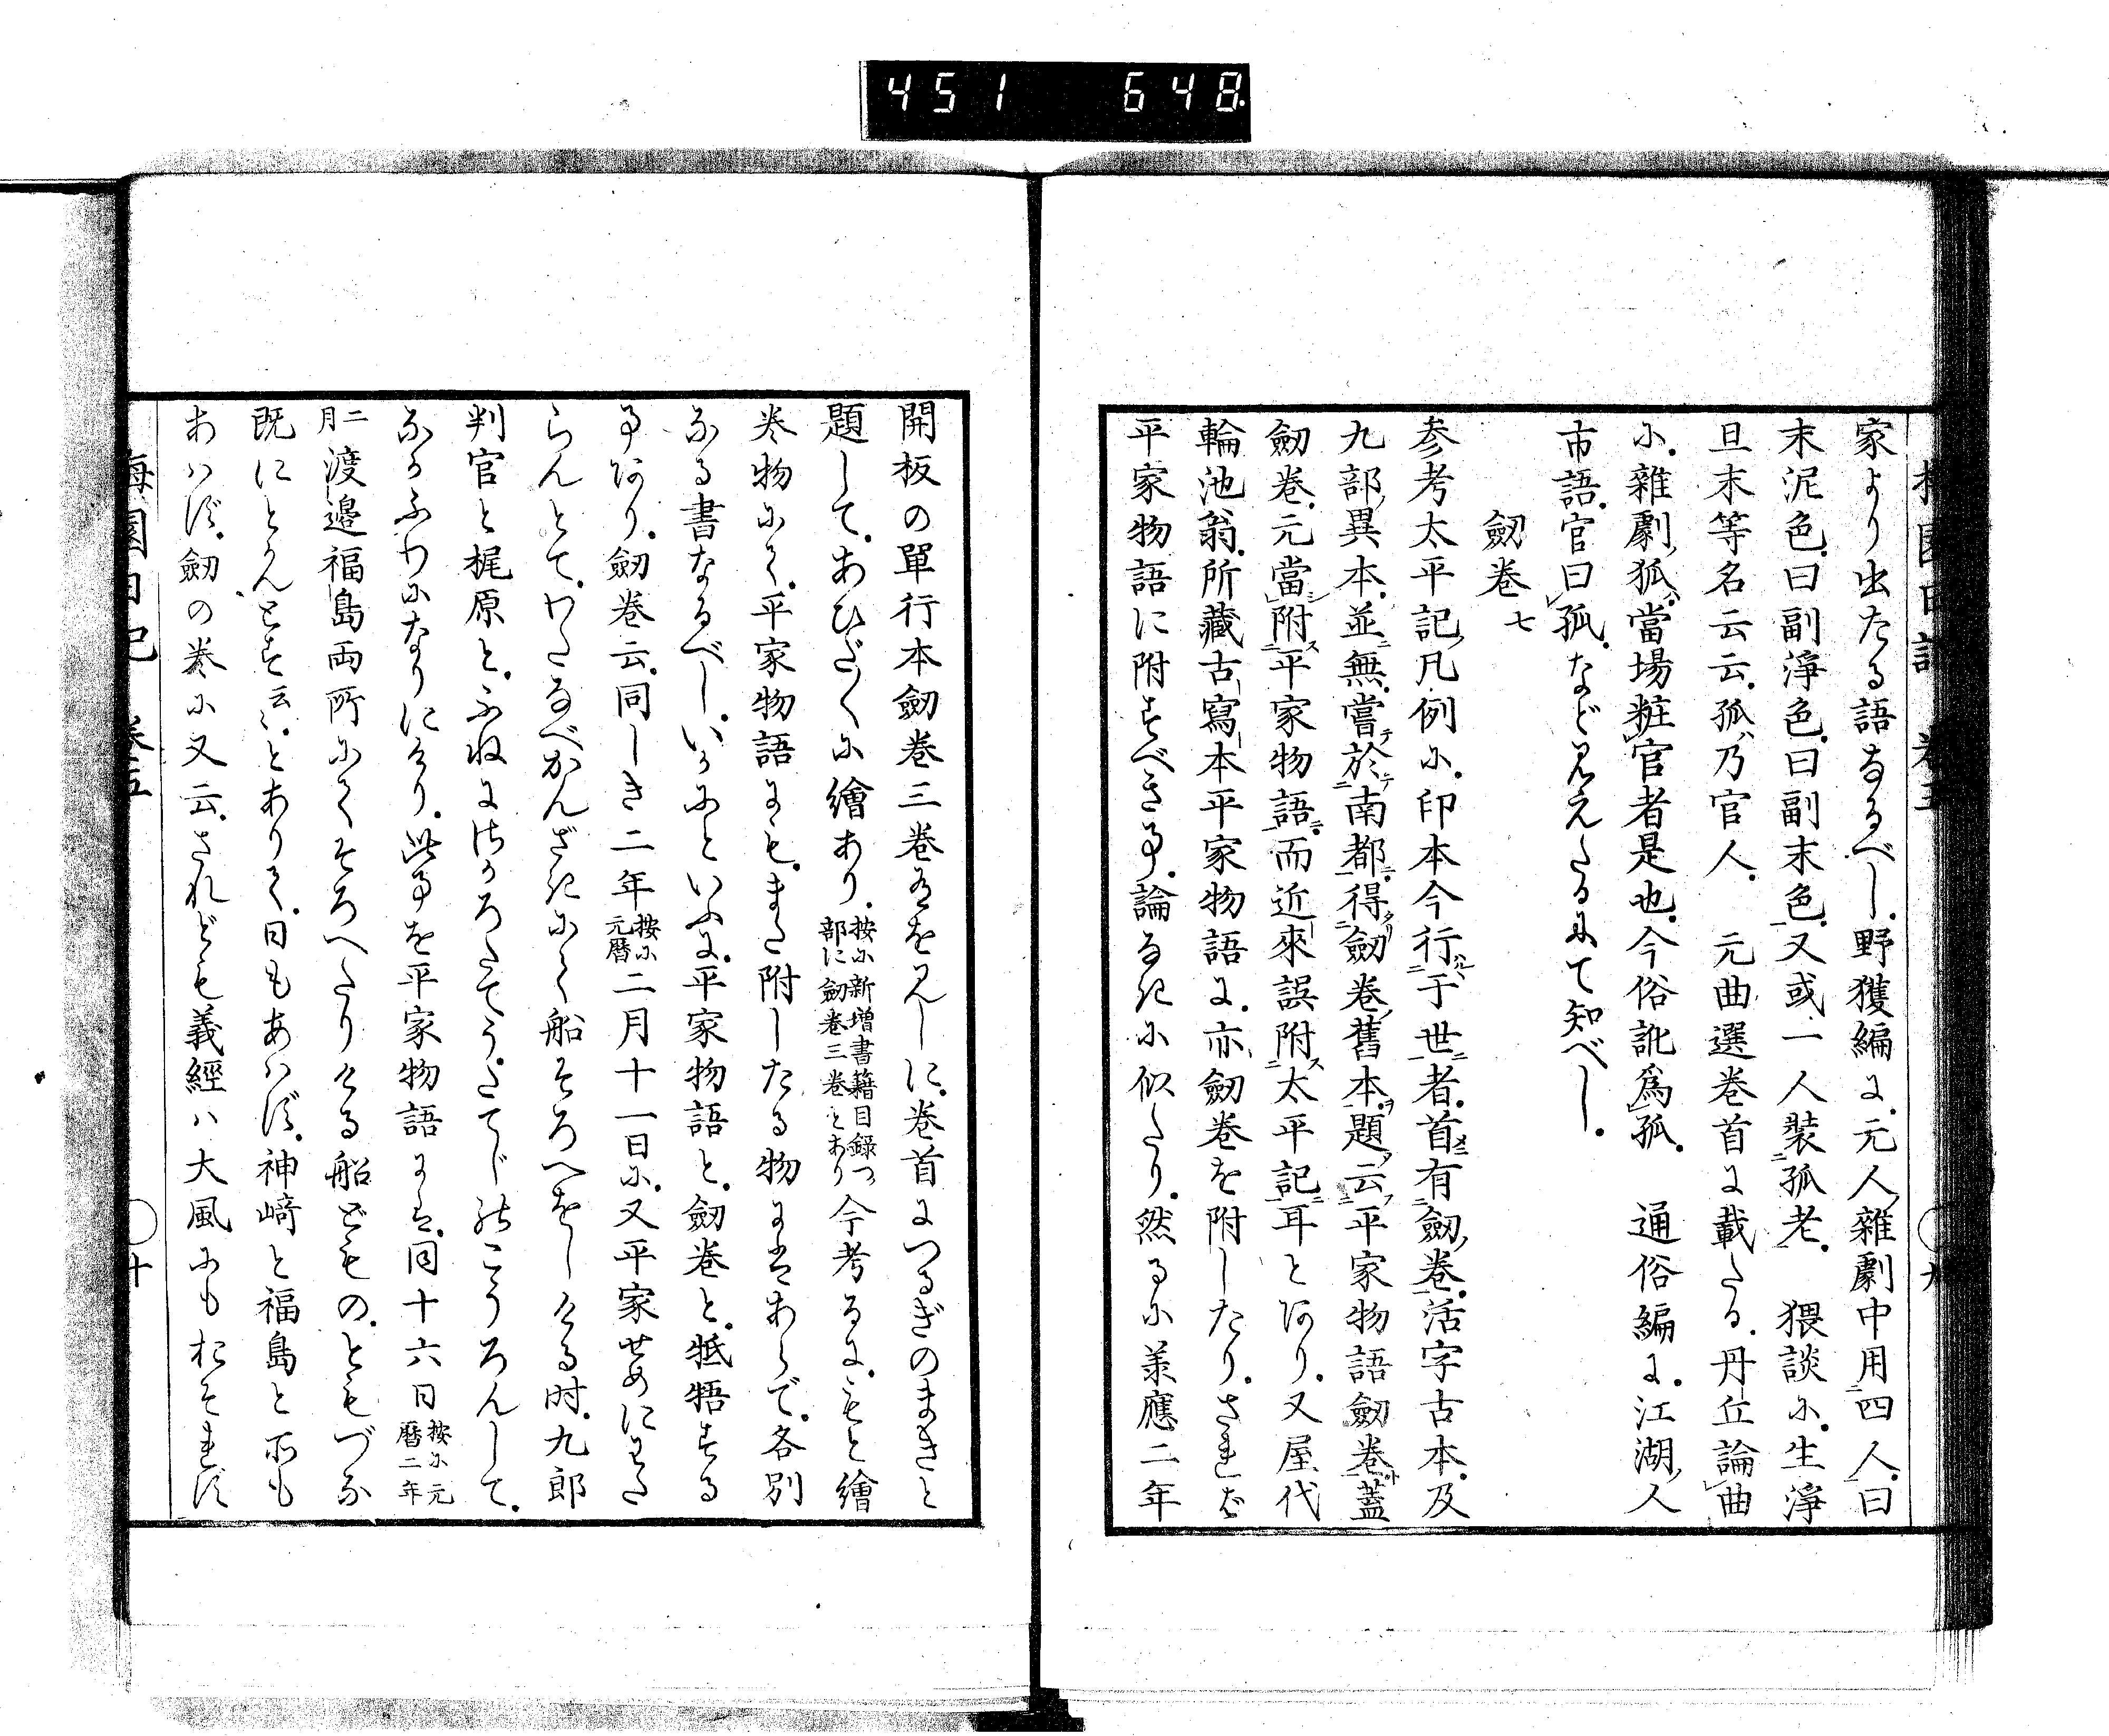 451 648
梅園日記 卷五 九
家より出たる語なるべし。野獲編に、元人雜劇中用四人。曰
末泥色。曰副淨色。曰副末色。又或一人裝孤老。 猥談に、生淨
旦末等名云云。孤乃官人。 元曲選卷首に載たる、丹丘論曲
に、雜劇狐。當場粧官者是也。今俗訛爲孤。 通俗編に、江湖人
市語。官曰孤。など見えたるにて知べし。
劔卷 七
参考太平記凡例に、印本今行于世者。首有劔卷。活字古本及
九部異本。並無。嘗於南都得劔卷舊本。題云平家物語劔卷蓋
劔卷。元當附平家物語。而近來誤附太平記耳とあり。又屋代
輪池翁。所藏古寫本平家物語に、亦劔卷を附したり。されば
平家物語に附すべき事。論なきに似たり。然るに羕應二年
開板の單行本劔卷三卷あるを見しに、卷首につるぎのまきと
題して。あひだ〳〵に繪あり。按に新增書籍目錄つ部に劔卷三卷とあり今考るに、もと繪
卷物にて、平家物語にも、また附したる物にはあらで。各別
なる書なるべし。いかにといふに、平家物語と、劔卷と、牴牾する
事あり。劔卷云。同しき二年按に元曆二月十一日に、又平家せめにわた
らんとて。わたなべかんざきにて船そろへをしける時。九郎
判官と梶原と、ふねにさかろたてう。たてじのこうろんして。
なかふわになりにけり。此事を平家物語には、同十六日按に元曆二年
二月渡邉福島両所にてそろへたりける船どもの。ともづな
既にとかんとす云云とありて、日もあはず。神﨑と福島と所も
あはず。劔の卷に又云。されども義經ハ大風にもおそれず
梅園日記 卷五 十